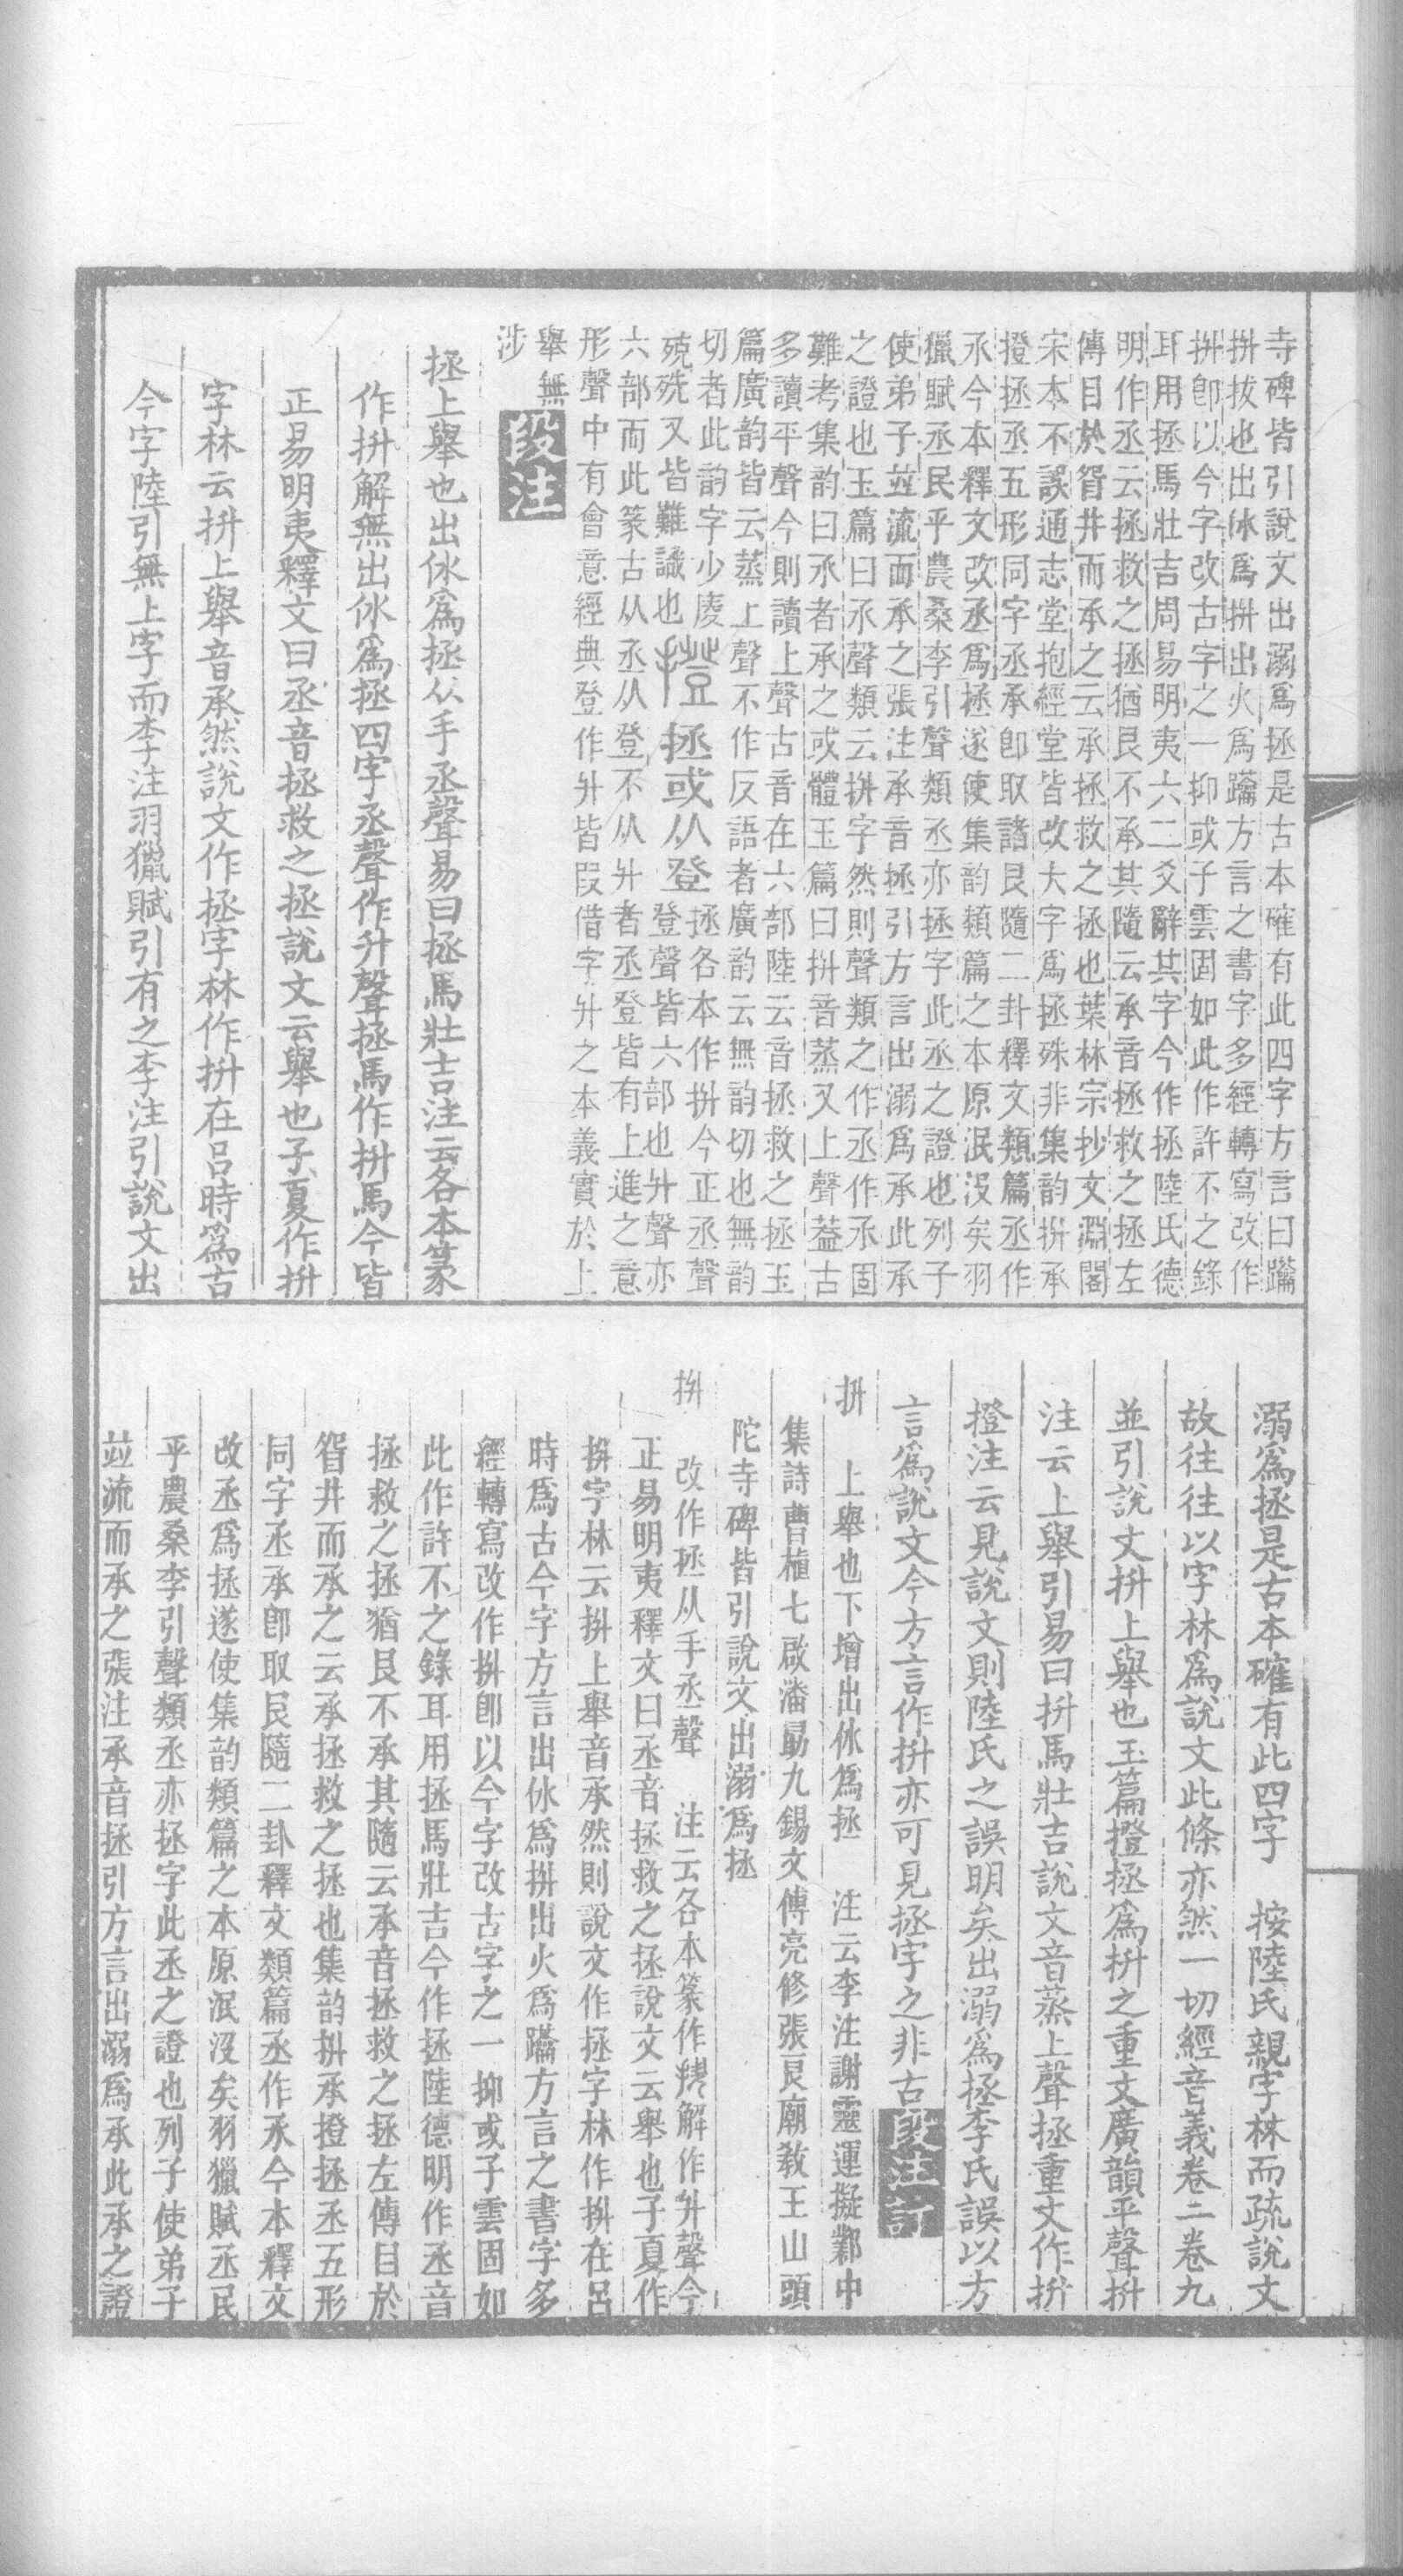 寺碑皆引說文出溺爲拯是古本確有此四字方言曰躋
拼拔也出㲻爲拼出火爲躋方言之書字多經轉寫改作
拼卽以今字改古字之一抑或子雲固如此作許不之錄
耳用拯馬壯吉周易明夷六二爻辭其字今作拯陸氏德
明作丞云拯救之拯猶艮不承其隨云承音拯救之拯左
傳目於眢井而承之云承拯救之拯也葉林宗抄文淵閣
宋本不誤通志堂抱經堂皆改大字爲拯殊非集韵拼承
撜拯丞五形同字丞承卽取諸艮隨二卦釋文類篇丞作
氶今本釋文改丞爲拯遂使集韵類篇之本原泯沒矣羽
獵賦丞民乎農桑李引聲類丞亦拯字此丞之證也列子
使弟子竝流而承之張注承音拯引方言出溺爲承此承
之證也玉篇曰氶聲類云拼字然則聲類之作丞作氶固
難考集韵曰氶者承之或體玉篇曰拼音蒸又上聲葢古
多讀平聲今則讀上聲古音在六部陸云音拯救之拯玉
篇廣韵皆云蒸上聲不作反語者廣韵云無韵切也無韵
切者此韵字少庱
殑殑又皆難識也 撜 拯或从登 拯各本作拼今正丞聲
登聲皆六部也升聲亦
六部而此篆古从丞从登不从升者丞登皆有上進之意
形聲中有會意經典登作升皆叚借字升之本義實於上
舉無
涉 段注
拯上舉也出㲻爲拯从手丞聲易曰拯馬壯吉注云各本篆
作拼解無出㲻爲拯四字丞聲作升聲拯馬作拼馬今皆
正易明夷釋文曰丞音拯救之拯說文云舉也子夏作拼
字林云拼上舉音承然說文作拯字林作拼在呂時爲古
今字陸引無上字而李注羽獵賦引有之李注引說文出
溺爲拯是古本確有此四字 按陸氏親字林而疏說文
故往往以字林爲說文此條亦然一切經音義卷二卷九
並引說文拼上舉也玉篇撜拯爲拼之重文廣韻平聲拼
注云上舉引易曰拼馬壯吉說文音蒸上聲拯重文作拼
撜注云見說文則陸氏之誤明矣出溺爲拯李氏誤以方
言爲說文今方言作拼亦可見拯字之非古 段注訂
拼 上舉也下增出㲻爲拯 注云李注謝靈運擬鄴中
集詩曹植七啟潘勗九錫文傅亮修張良廟教王山頭
陀寺碑皆引說文出溺爲拯
拼 改作拯从手丞聲 注云各本篆作拼解作升聲今
正易明夷釋文曰丞音拯救之拯說文云舉也子夏作
拼字林云拼上舉音承然則說文作拯字林作拼在呂
時爲古今字方言出㲻爲拼出火爲躋方言之書字多
經轉寫改作拼卽以今字改古字之一抑或子雲固如
此作許不之錄耳用拯馬壯吉今作拯陸德明作丞音
拯救之拯猶艮不承其隨云承音拯救之拯左傳目於
眢井而承之云承拯救之拯也集韵拼承撜拯丞五形
同字丞承卽取艮隨二卦釋文類篇丞作氶今本釋文
改丞爲拯遂使集韵類篇之本原泯沒矣羽獵賦丞民
乎農桑李引聲類丞亦拯字此丞之證也列子使弟子
竝流而承之張注承音拯引方言出溺爲承此承之證